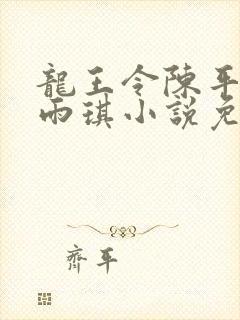 龍王令陳平
雨琪小說免
齊平